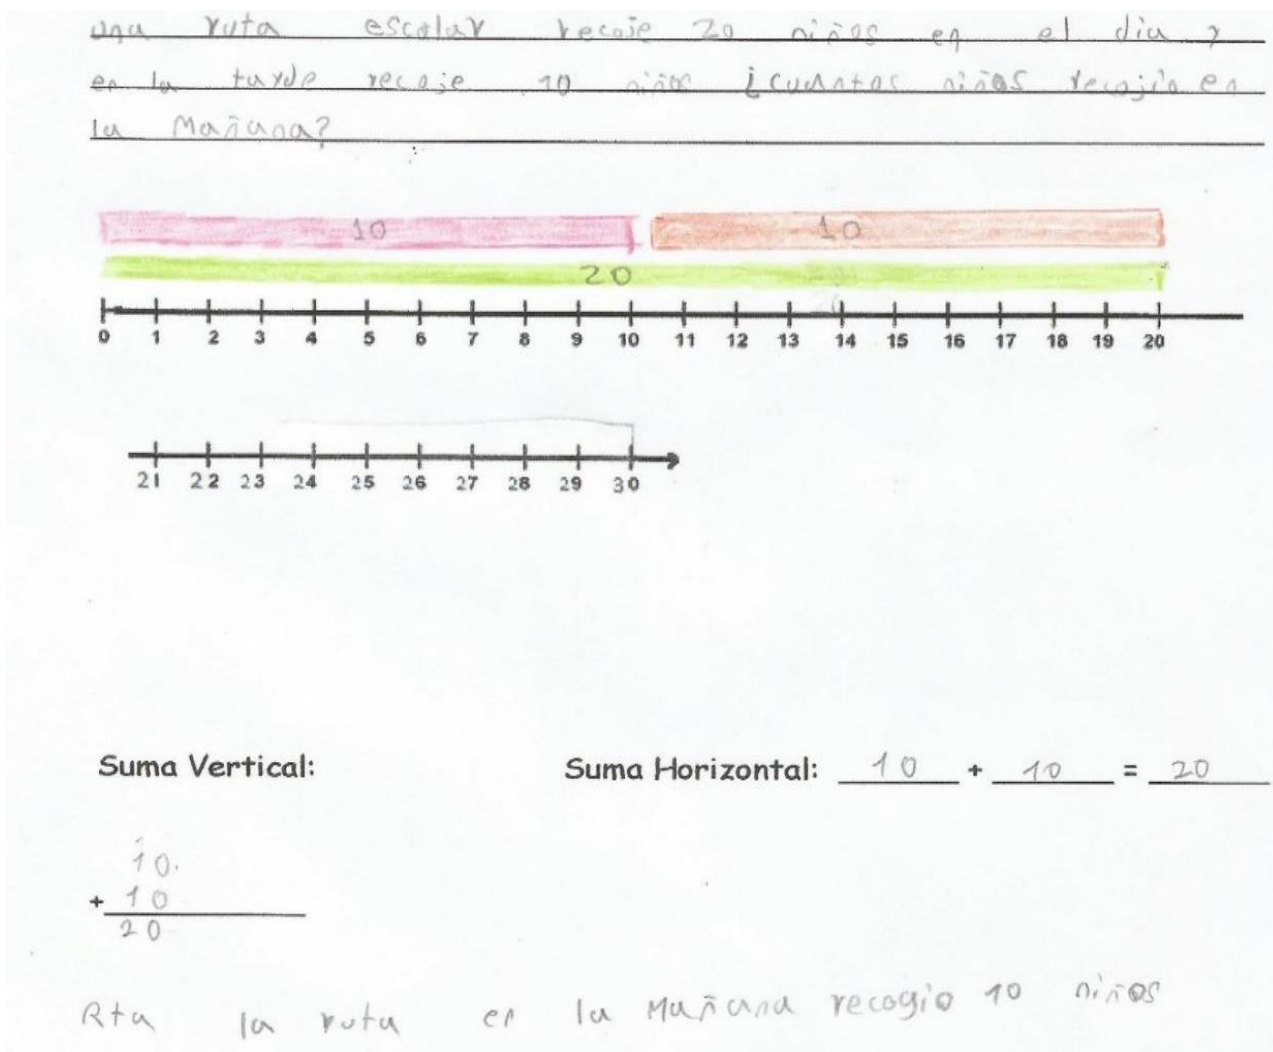 una ruta escolar recoje 20 niños en el dia y
en la tarde recoje 10 niños ¿cuantos niños recojio en
la Mañana?
10 10
20
0 1 2 3 4 5 6 7 8 9 10 11 12 13 14 15 16 17 18 19 20
21 22 23 24 25 26 27 28 29 30
Suma Vertical:
Suma Horizontal: 10 + 10 = 20
10
+ 10
20
Rta la ruta en la Mañana recogio 10 niños